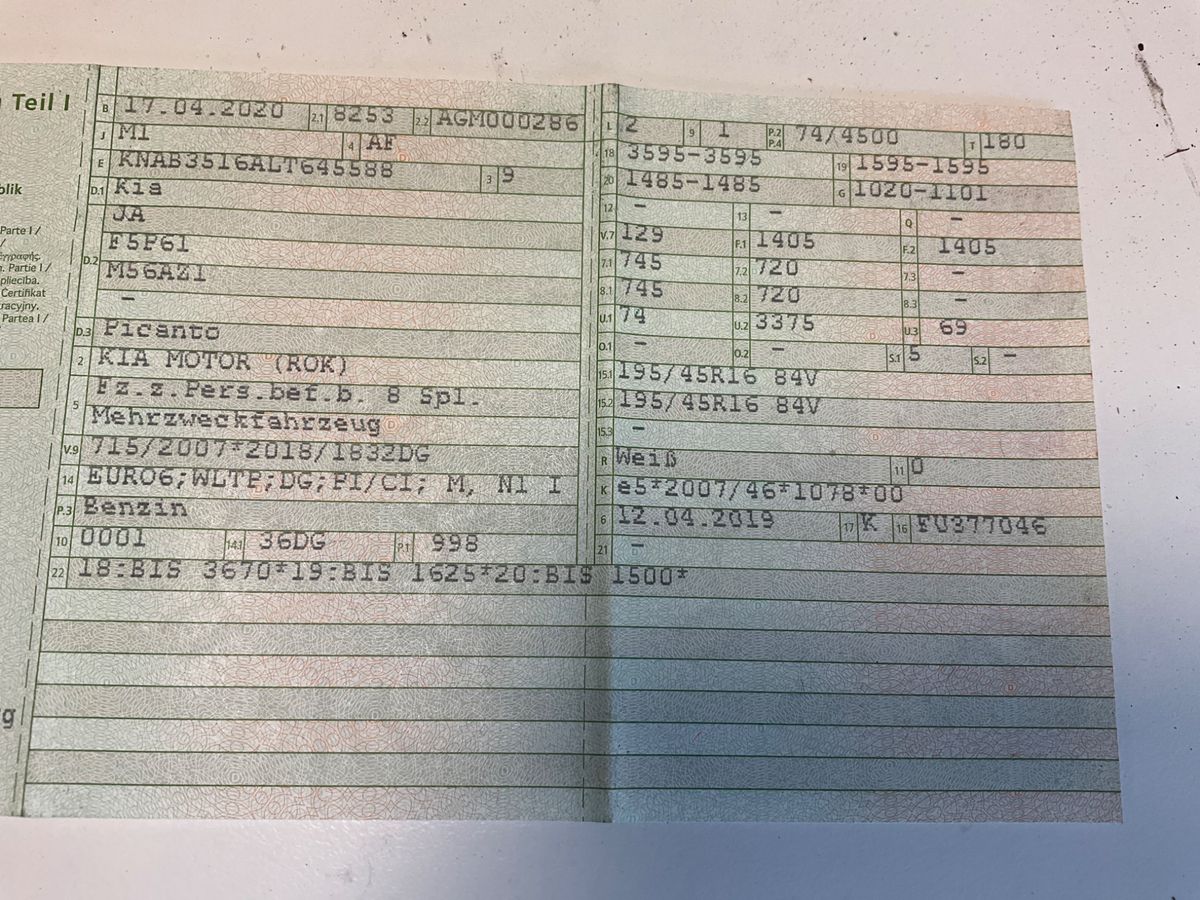 Teil I
blik
Parte I /
/
εγγραφής.
. Partie I /
pliecība.
Certifikat
tracyjny.
Partea I /
g
B 17.04.2020 2.1 8253 2.2 AGM000286
J M1 4 AF
E KNAB3516ALT645588 3 9
D.1 Kia
JA
D.2 F5P61
M56AZ1
–
D.3 Picanto
2 KIA MOTOR (ROK)
5 Fz.z.Pers.bef.b. 8 Spl.
Mehrzweckfahrzeug
V.9 715/2007*2018/1832DG
14 EURO6;WLTP;DG;PI/CI; M, N1 I
P.3 Benzin
10 0001 14.1 36DG P.1 998
22 18:BIS 3670*19:BIS 1625*20:BIS 1500*
L 2 9 1 P.2 P.4 74/4500 T 180
18 3595-3595 19 1595-1595
20 1485-1485 G 1020-1101
12 – 13 – Q –
V.7 129 F.1 1405 F.2 1405
7.1 745 7.2 720 7.3 –
8.1 745 8.2 720 8.3 –
U.1 74 U.2 3375 U.3 69
O.1 – O.2 – S.1 5 S.2 –
15.1 195/45R16 84V
15.2 195/45R16 84V
15.3 –
R Weiß 11 0
K e5*2007/46*1078*00
6 12.04.2019 17 K 16 FU377046
21 –